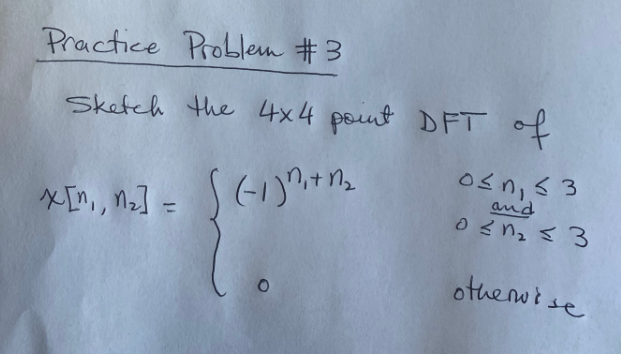 Practice Problem #3
Sketch the 4x4 point DFT of
x[n₁, n₂] = { (-1)^(n₁+n₂)   0 ≤ n₁ ≤ 3
and
0 ≤ n₂ ≤ 3
0   otherwise